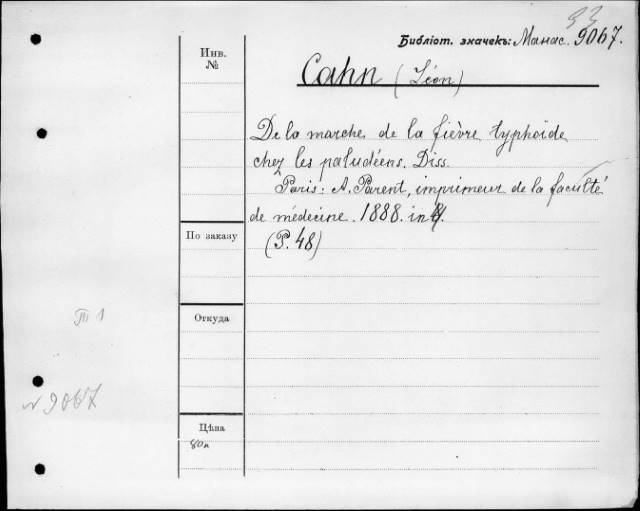 93
Библіот. значекъ: Манас. 9067.
Инв.
№
Cahn (Léon)
De la marche de la fièvre typhoïde
chez les paludéens. Diss.
Paris: A. Parent, imprimeur de la faculté
de médecine. 1888. in 4.
(P. 48)
По заказу
Откуда
П 1
№ 9067
Цѣна
80к